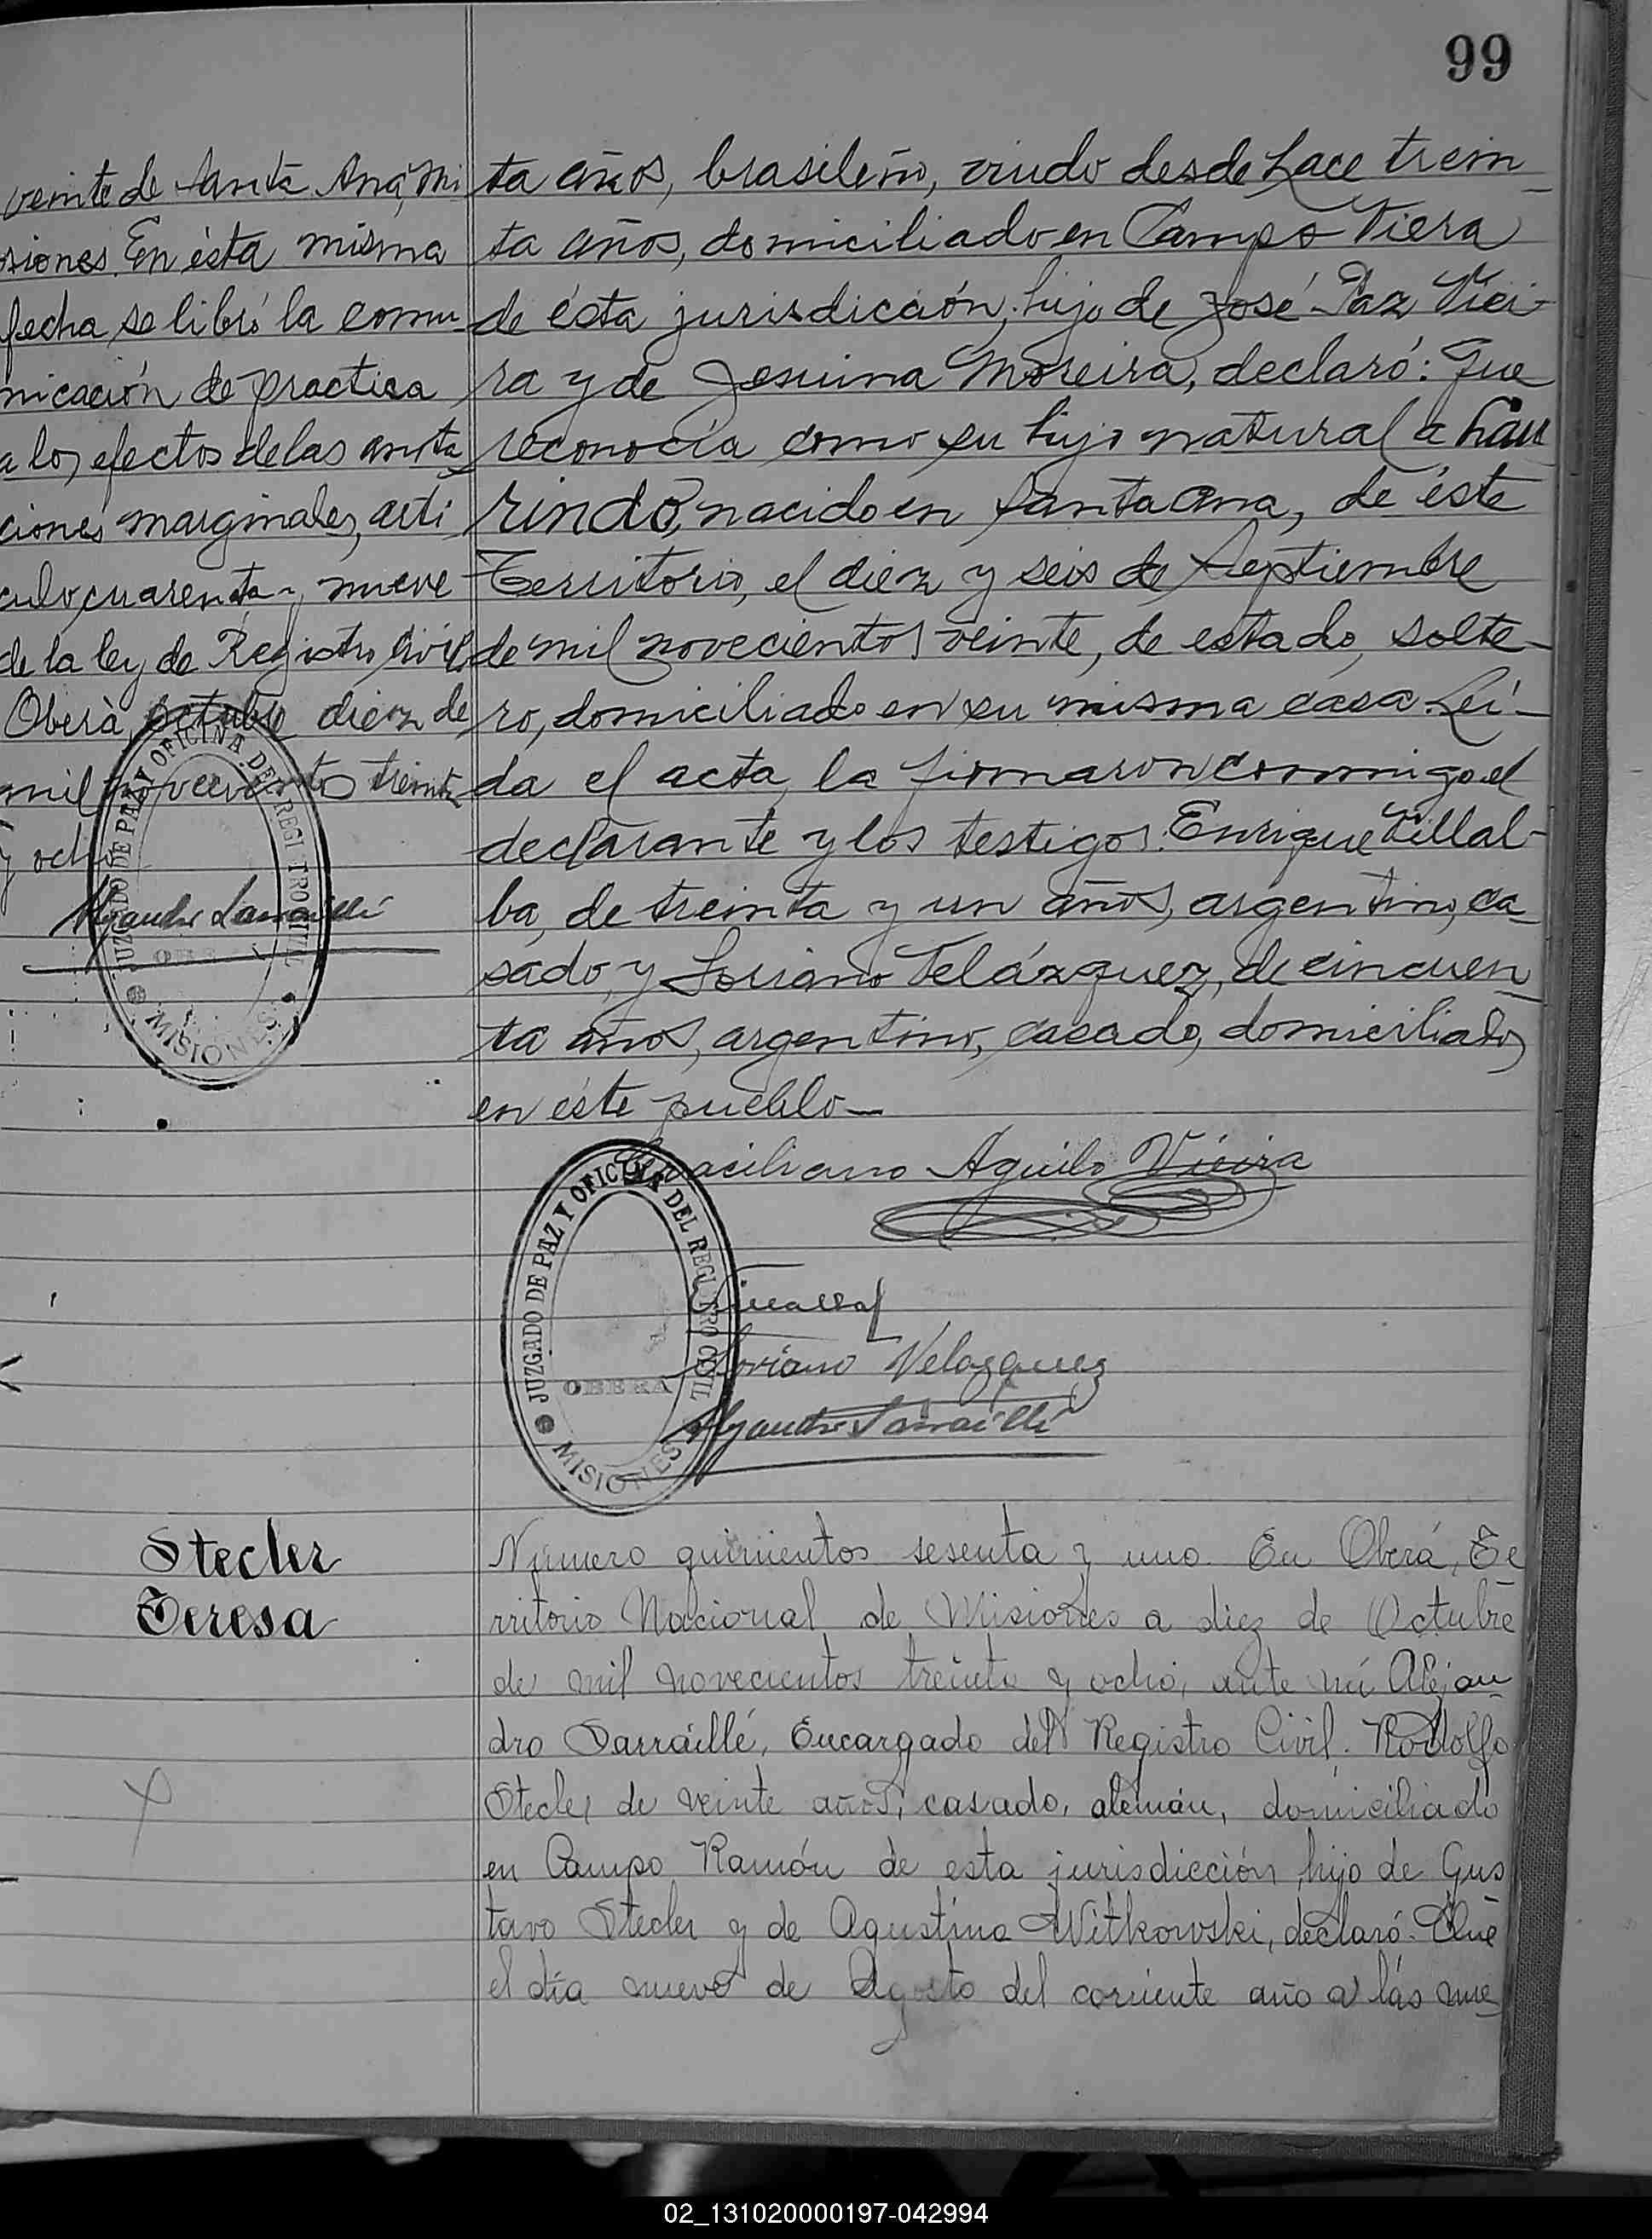 99
veinte de Santa Ana, Mi
siones. En ésta misma
fecha se libró la comu-
nicación de practica
a los efectos de las anota
ciones marginales, arti
culo cuarenta y nueve
de la ley de Registro Civil
Oberà, octubre diez de
mil novecientos treinta
y ocho
Alejandro Sarraillé
JUZGADO DE PAZ Y OFICINA DEL REGI TRO CIVIL
MISIONES
ta años, brasileño, viudo desde hace trein
ta años, domiciliado en Campo Viera
de ésta jurisdicción, hijo de José Paz Viei-
ra y de Jesuina Moreira, declaró: Que
reconocía como su hijo natural a Lau
rindo, nacido en Santa Ana, de éste
Territorio, el diez y seis de Septiembre
de mil novecientos veinte, de estado, solte-
ro, domiciliado en su misma casa. Leí-
da el acta, la firmaron conmigo el
declarante y los testigos: Enrique Villal-
ba, de treinta y un años, argentino, ca
sado, y Soriano Velázquez, de cincuen
ta años, argentino, casado, domiciliados
en éste pueblo—
Graciliano Aguilo Vieira
JUZGADO DE PAZ Y OFICINA DEL REGISTRO CIVIL
OBERA
MISIONES
Soriano Velazquez
Alejandro Sarraillé
Stecler
Teresa
Número quinientos sesenta y uno. En Oberá, Te
rritorio Nacional de Misiones a diez de Octubre
de mil novecientos treinta y ocho, ante mí Alejan
dro Sarraillé, Encargado del Registro Civil. Rodolfo
Stecler de veinte años, casado, alemán, domiciliado
en Campo Ramón de esta jurisdicción, hijo de Gus
tavo Stecler y de Agustina Witkowski, declaró: Que
el día nueve de Agosto del corriente año a las nue
02_131020000197-042994